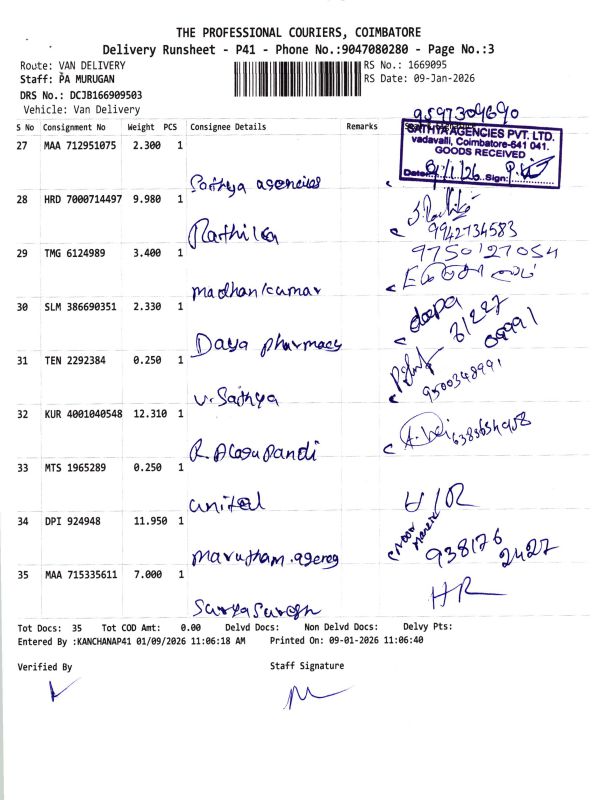 THE PROFESSIONAL COURIERS, COIMBATORE
Delivery Runsheet - P41 - Phone No.:9047080280 - Page No.:3
Route: VAN DELIVERY
RS No.: 1669095
Staff: PA MURUGAN
RS Date: 09-Jan-2026
DRS No.: DCJB166909503
Vehicle: Van Delivery
9597309690
S No Consignment No Weight PCS Consignee Details Remarks
SATHYA AGENCIES PVT. LTD.
vadavalli, Coimbatore-641 041.
GOODS RECEIVED
Date: 9/1/26 Sign:
27 MAA 712951075 2.300 1
Sathya agencies
28 HRD 7000714497 9.980 1
Rathika
9942734583
29 TMG 6124989 3.400 1
9750127054
madhankumar
30 SLM 386690351 2.330 1
deepa
Daya pharmacy
31 TEN 2292384 0.250 1
9500348991
V. Sathya
32 KUR 4001040548 12.310 1
R. Alagupandi
33 MTS 1965289 0.250 1
united
34 DPI 924948 11.950 1
938176
2427
35 MAA 715335611 7.000 1
HR
Tot Docs: 35 Tot COD Amt: 0.00 Delvd Docs: Non Delvd Docs: Delvy Pts:
Entered By :KANCHANAP41 01/09/2026 11:06:18 AM Printed On: 09-01-2026 11:06:40
Verified By Staff Signature